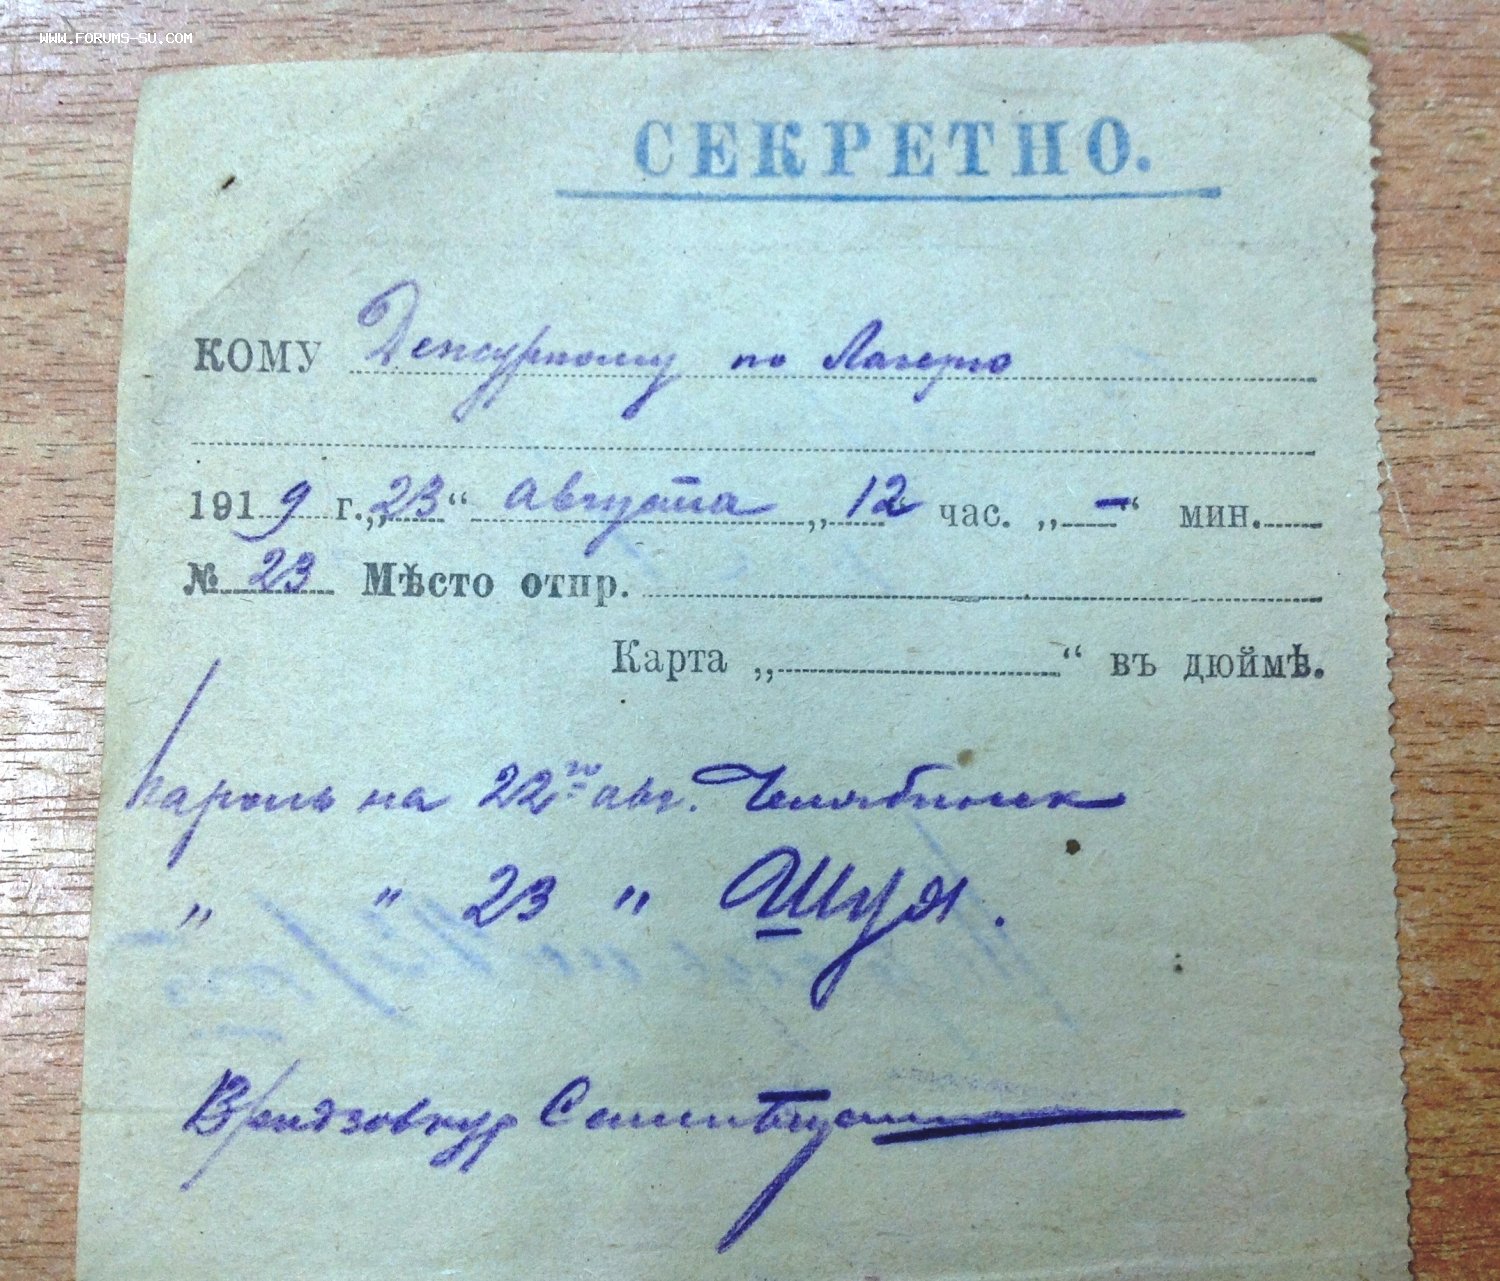 WWW.FORUMS-SU.COM
СЕКРЕТНО.
КОМУ Дежурному по Лагерю
1919 г. „23“ августа „12 час. „–“ мин.
№ 23 Мѣсто отпр.
Карта „ “ въ дюймѣ.
Пароль на 22го авг. Челябинск
„ „ 23 „ Шуя.